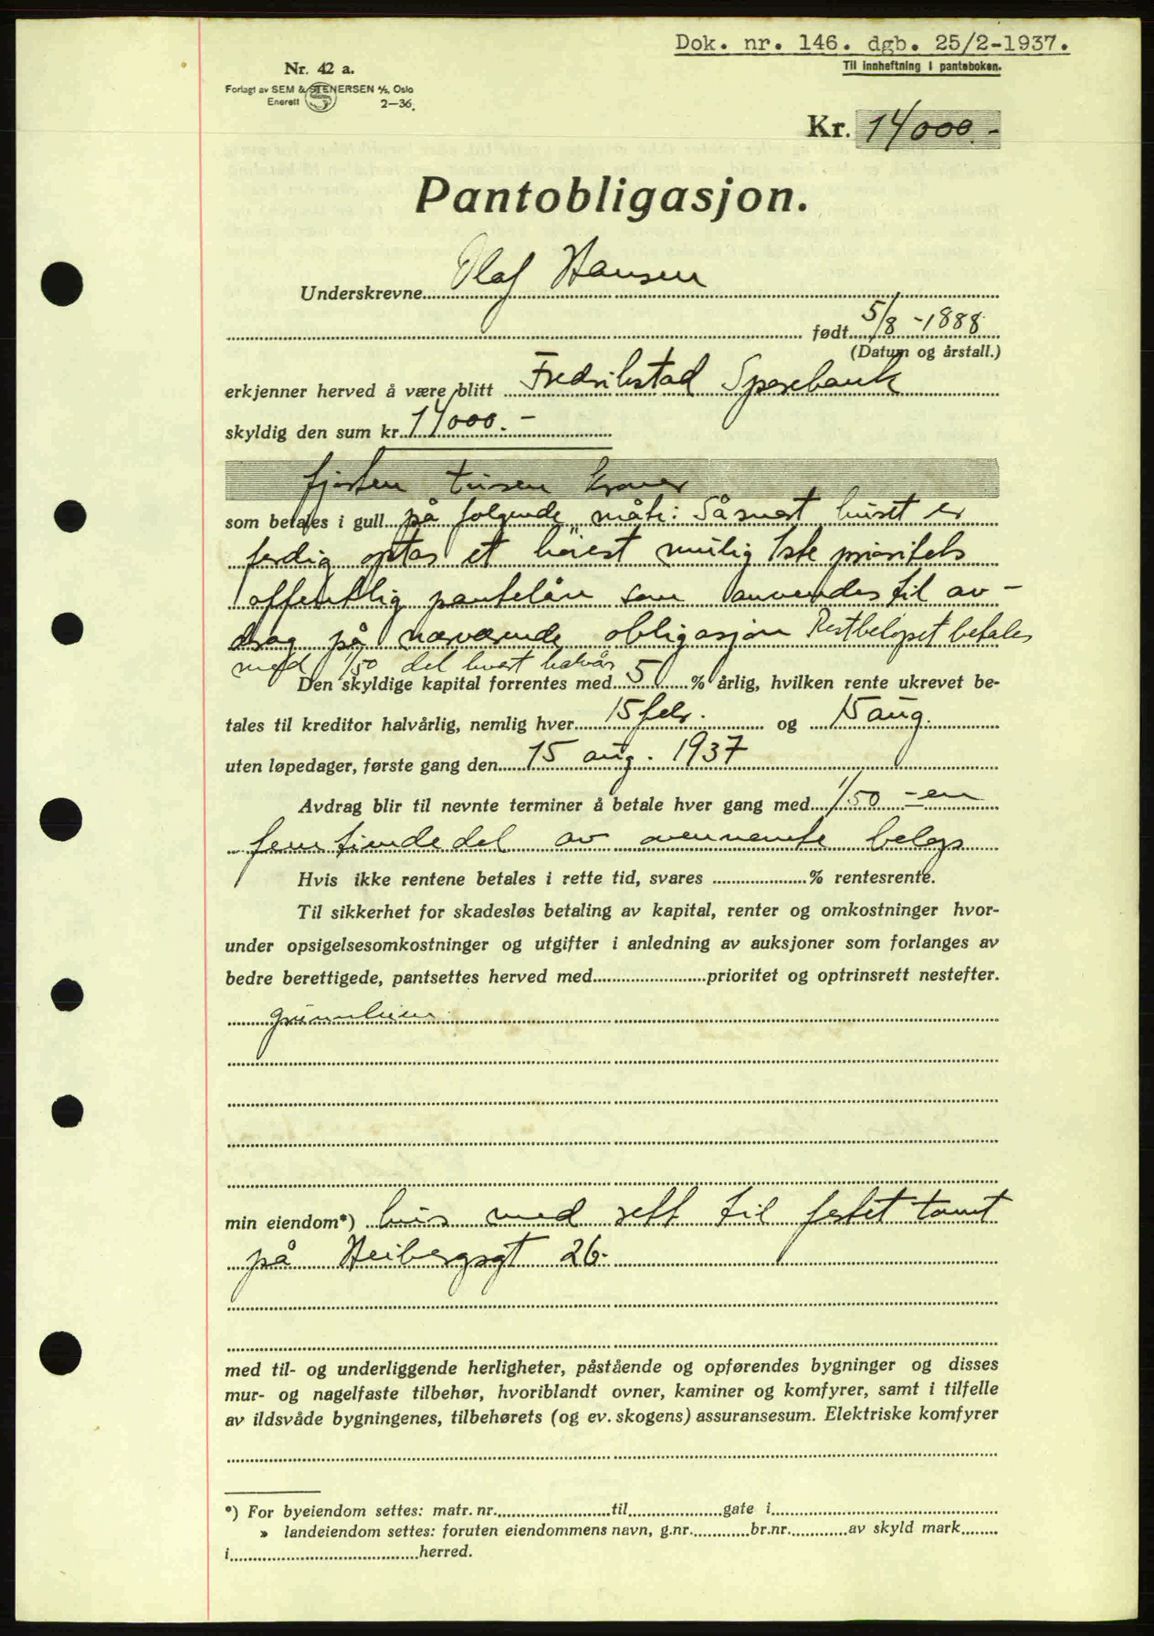 Dok. nr. 146. dgb. 25/2-1937.
Til innheftning i panteboken.
Nr. 42 a.
Forlagt av SEM & STENERSEN A/S, Oslo
Enerett 2—36.
Kr. 14000.-
Pantobligasjon.
Underskrevne Olaf Hansen
født 5/8-1888
(Datum og årstall.)
erkjenner herved å være blitt Fredrikstad Sparebank
skyldig den sum kr. 14000.-
fjorten tusen kroner
som betales i gull på følgende måte: Såsnart huset er
ferdig optas et høiest mulig 1ste prioritets
offentlig pantelån som anvendes til av-
drag på nærværende obligasjon Restbeløpet betales
med 1/50 del hvert halvår
Den skyldige kapital forrentes med 5 % årlig, hvilken rente ukrevet be-
tales til kreditor halvårlig, nemlig hver 15 febr. og 15 aug.
uten løpedager, første gang den 15 aug. 1937
Avdrag blir til nevnte terminer å betale hver gang med 1/50 -en
femtiendedel av ovennevnte beløp
Hvis ikke rentene betales i rette tid, svares % rentesrente.
Til sikkerhet for skadesløs betaling av kapital, renter og omkostninger hvor-
under opsigelsesomkostninger og utgifter i anledning av auksjoner som forlanges av
bedre berettigede, pantsettes herved med prioritet og optrinsrett nestefter.
min eiendom*) hus med rett til festet tomt
på Heibergsgt 26.
med til- og underliggende herligheter, påstående og opførendes bygninger og disses
mur- og nagelfaste tilbehør, hvoriblandt ovner, kaminer og komfyrer, samt i tilfelle
av ildsvåde bygningenes, tilbehørets (og ev. skogens) assuransesum. Elektriske komfyrer
*) For byeiendom settes: matr. nr. til gate i
» landeiendom settes: foruten eiendommens navn, g.nr. br.nr. av skyld mark
i herred.